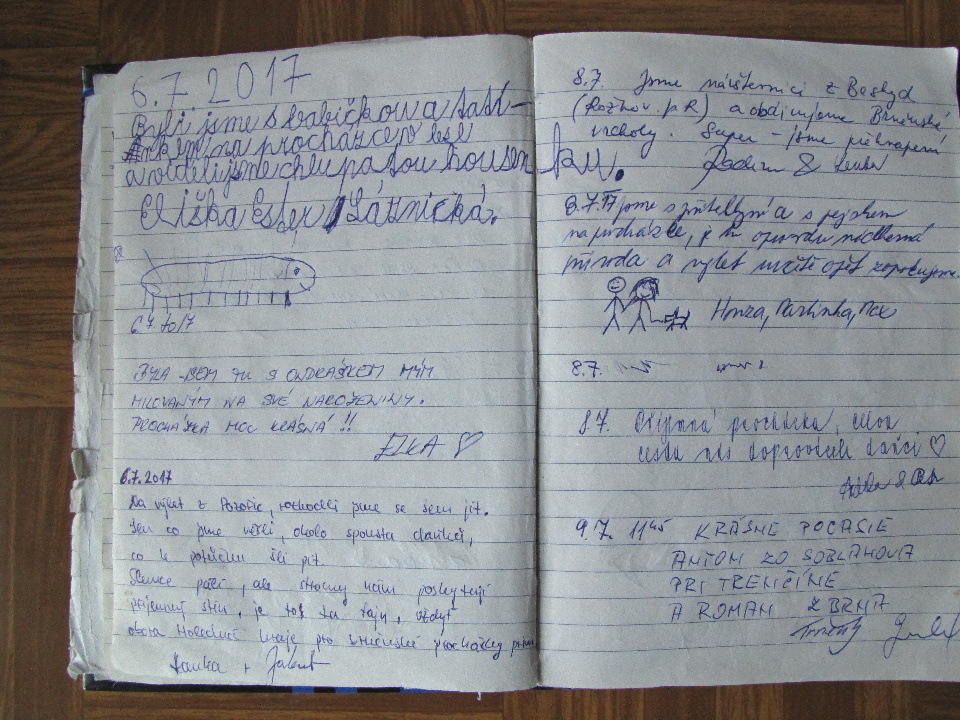 6.7. 2017
Byli jsme s babičkou a tatí-
nkem na procházce v lese
a viděli jsme chlupatou housenku.
Eliška Ester Látnická.
6.7 2017
BYLA JSEM TU S ONDRÁŠKEM MÝM
MILOVANÝM NA SVÉ NAROZENINY.
PROCHÁZKA MOC KRÁSNÁ !!
6.7.2017
Na výlet z Pozořic, rozhodli jsme se sem jít.
Jen co jsme vešli, okolo spousta daňků,
co k potůčku šli pít.
Slunce pálí, ale stromy nám poskytují
příjemný stín, je tak tu fajn, vždyť
obora Holedná je pro
Hanka + Jakub
8.7. Jsme návštěvníci z Beskyd
(Rožnov p. R) a obdivujeme Brněnské
vrcholy. Super - jsme překvapeni
Radim & Lenka
8.7.17 jsme s přítelkyní a s pejskem
na procházce, je tu opravdu nádherná
příroda a výlet určitě opět zopakujeme.
Honza, Martinka, Max
8.7.
8.7. procházka, celou
cestu nás doprovodili daňci ♡
9.7. 11⁴⁵ KRÁSNE POČASIE
ANTON ZO SOBLAHOVA
PRI TRENČÍNĚ
A ROMAN Z BRNA